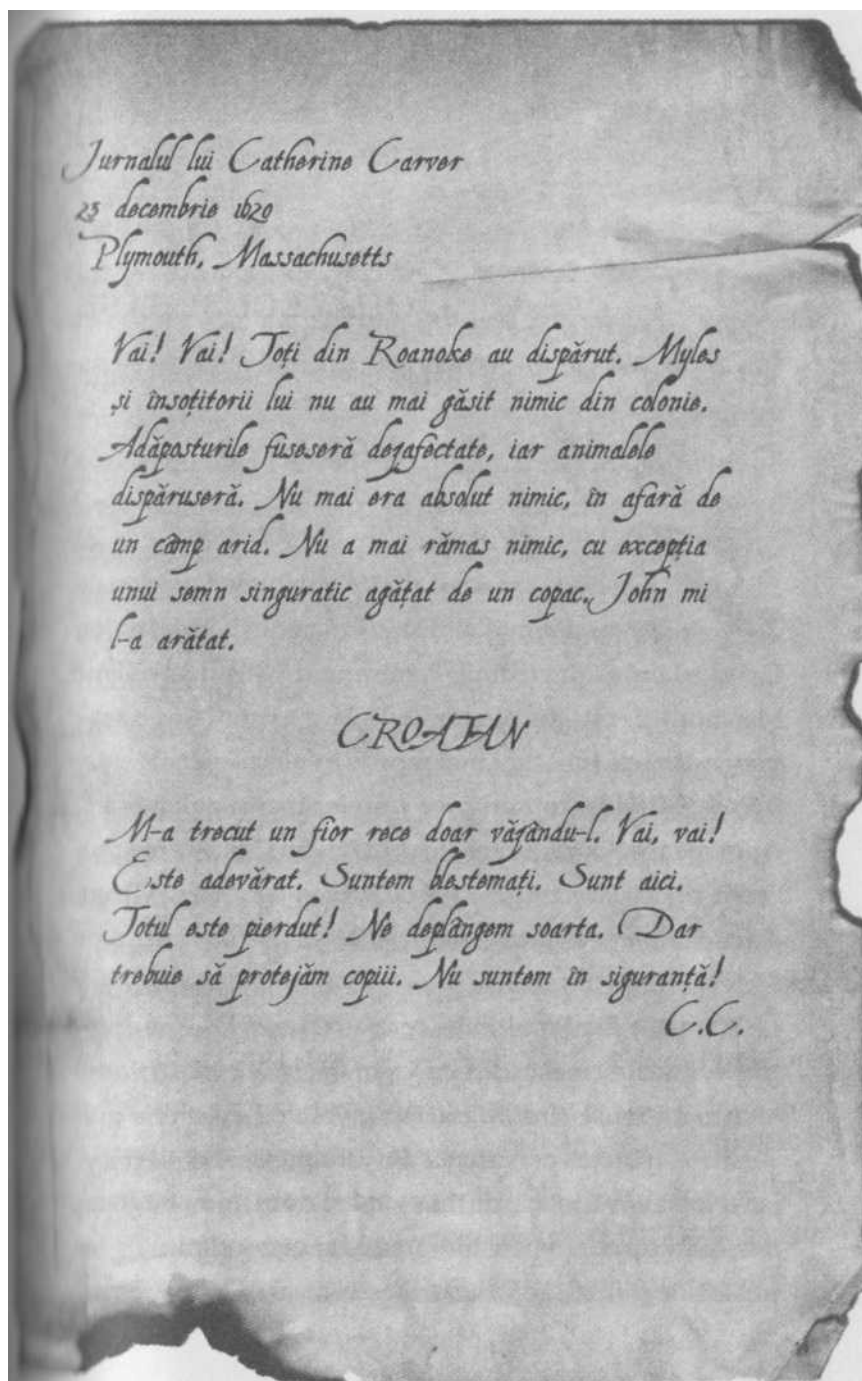 Jurnalul lui Catherine Carver
23 decembrie 1620
Plymouth, Massachusetts
Vai! Vai! Toți din Roanoke au dispărut. Myles
și însoțitorii lui nu au mai găsit nimic din colonie.
Adăposturile fuseseră dezafectate, iar animalele
dispăruseră. Nu mai era absolut nimic, în afară de
un câmp arid. Nu a mai rămas nimic, cu excepția
unui semn singuratic agățat de un copac. John mi
l-a arătat.
CROATAN
M-a trecut un fior rece doar văzându-l. Vai, vai!
Este adevărat. Suntem blestemați. Sunt aici.
Totul este pierdut! Ne deplângem soarta. Dar
trebuie să protejăm copiii. Nu suntem în siguranță!
C.C.